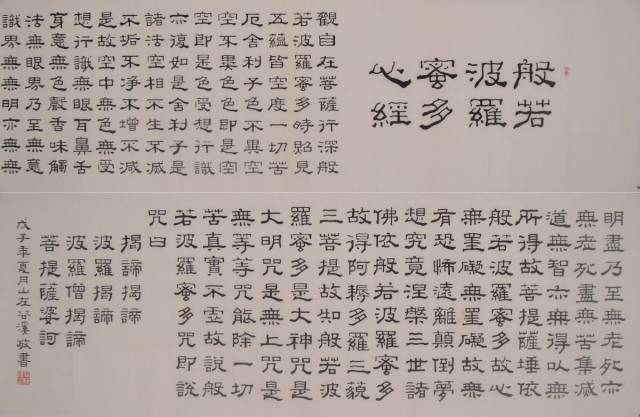 般若
波羅
蜜多
心經
觀自在菩薩行深般
若波羅蜜多時照見
五蘊皆空度一切苦
厄舍利子色不異空
空不異色色即是空
空即是色受想行識
亦復如是舍利子是
諸法空相不生不滅
不垢不淨不增不減
是故空中無色無受
想行識無眼耳鼻舌
身意無色聲香味觸
法無眼界乃至無意
識界無無明亦無無
明盡乃至無老死亦
無老死盡無苦集滅
道無智亦無得以無
所得故菩提薩埵依
般若波羅蜜多故心
無罣礙無罣礙故無
有恐怖遠離顛倒夢
想究竟涅槃三世諸
佛依般若波羅蜜多
故得阿耨多羅三藐
三菩提故知般若波
羅蜜多是大神咒是
大明咒是無上咒是
無等等咒能除一切
苦真實不虛故說般
若波羅蜜多咒即說
咒曰
揭諦揭諦
波羅揭諦
波羅僧揭諦
菩提薩婆訶
戊子年夏月山左谷溪敬書